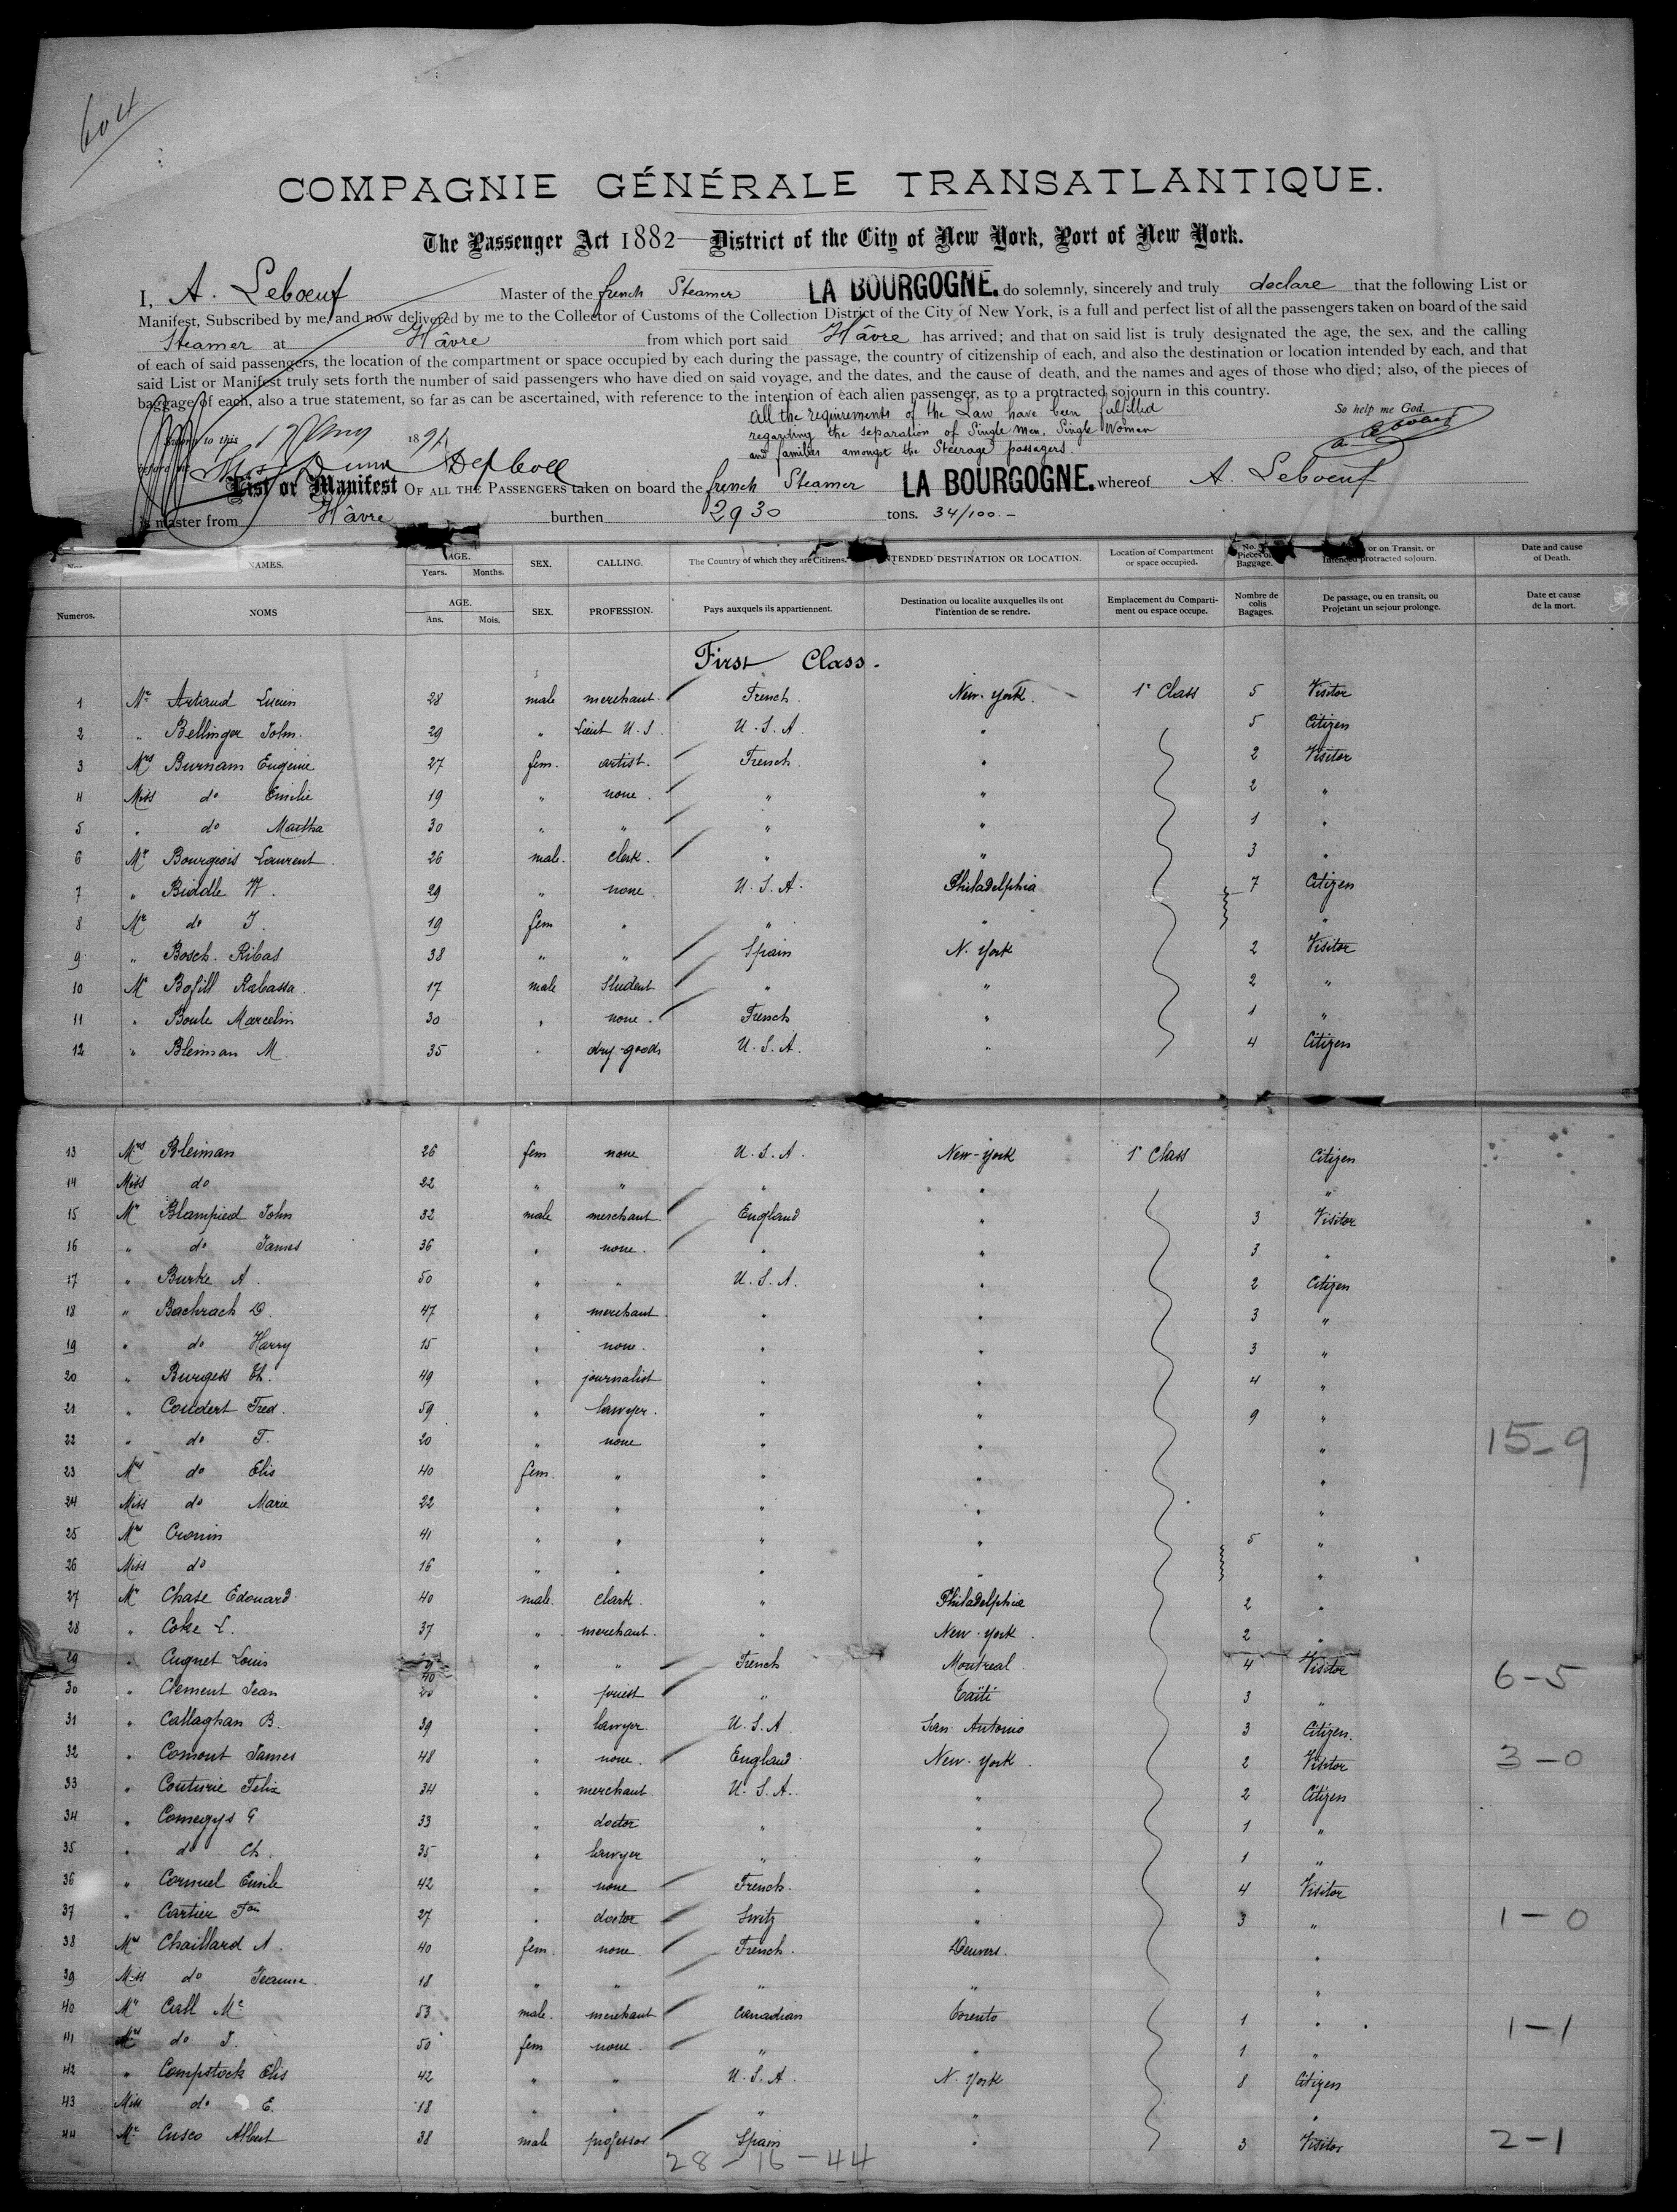 604
COMPAGNIE GÉNÉRALE TRANSATLANTIQUE.
The Passenger Act 1882—District of the City of New York, Port of New York.
I, A. Lebœuf Master of the french Steamer LA BOURGOGNE. do solemnly, sincerely and truly declare that the following List or
Manifest, Subscribed by me, and now delivered by me to the Collector of Customs of the Collection District of the City of New York, is a full and perfect list of all the passengers taken on board of the said
Steamer at Hâvre from which port said Hâvre has arrived; and that on said list is truly designated the age, the sex, and the calling
of each of said passengers, the location of the compartment or space occupied by each during the passage, the country of citizenship of each, and also the destination or location intended by each, and that
said List or Manifest truly sets forth the number of said passengers who have died on said voyage, and the dates, and the cause of death, and the names and ages of those who died; also, of the pieces of
baggage of each, also a true statement, so far as can be ascertained, with reference to the intention of each alien passenger, as to a protracted sojourn in this country.
All the requirements of the Law have been fulfilled So help me God.
regarding the separation of Single Men, Single Women
and families amongst the Steerage passagers.
to this 189 A Lebœuf
Dunn Dep Coll
List or Manifest OF ALL THE PASSENGERS taken on board the french Steamer LA BOURGOGNE. whereof A. Lebœuf
is master from Hâvre burthen 2930 tons. 34/100.-
NAMES. AGE. Years. Months. SEX. CALLING. The Country of which they are Citizens. INTENDED DESTINATION OR LOCATION. Location of Compartment or space occupied. No. Pieces of Baggage. or on Transit, or Intended protracted sojourn. Date and cause of Death.
Numeros. NOMS AGE. Ans. Mois. SEX. PROFESSION. Pays auxquels ils appartiennent. Destination ou localite auxquelles ils ont l'intention de se rendre. Emplacement du Comparti-ment ou espace occupe. Nombre de colis Bagages. De passage, ou en transit, ou Projetant un sejour prolonge. Date et cause de la mort.
First Class.
1 Mr Artaud Lucien 28 male merchant French New-York. 1r Class 5 Visitor
2 " Bellinger John. 29 " Lieut U.S. U.S.A. " 5 Citizen
3 Mrs Burnam Eugenie 27 fem. artist. French. " 2 Visitor
4 Miss do Emilie 19 " none. " " 2 "
5 " do Martha 30 " " " " 1 "
6 Mr Bourgeois Laurent. 26 male. clerk. " " 3 "
7 " Biddle W. 29 " none. U.S.A. Philadelphia 7 Citizen
8 Mr do J. 19 fem " " " "
9 " Bosch. Ribas 38 " " Spain N. York 2 Visitor
10 Mr Bofill Rabassa. 17 male Student " " 2 "
11 " Boule Marcelin 30 " none. French " 1 "
12 " Bleiman M. 35 " dry-goods U.S.A. " 4 Citizen
13 Mrs Bleiman 26 fem none U.S.A. New-york 1r Class Citizen
14 Miss do 22 " " " " "
15 Mr Blampied John 32 male merchant. England " 3 Visitor
16 " do James 36 " none. " " 3 "
17 " Burke A. 50 " " U.S.A. " 2 Citizen
18 " Bachrach D. 47 " merchant. " " 3 "
19 " do Harry 15 " none. " " 3 "
20 " Burgess Th. 49 " journalist " " 4 "
21 " Coudert Fred. 59 " lawyer. " " 9 "
22 " do F. 20 " none " " " 15-9
23 Mrs do Elis 40 fem. " " " "
24 Miss do Marie 22 " " " " "
25 Mrs Cronin 41 " " " " 5 "
26 Miss do 16 " " " " "
27 Mr Chase Edouard. 40 male. Clark. " Philadelphia 2 "
28 " Coke L. 37 " merchant. " New-york. 2 "
29 " Cugnet Louis 40 " " French Montreal. 4 Visitor 6-5
30 " Clement Jean " priest " Taïti 3 "
31 " Callaghan B. 39 " lawyer. U.S.A. San Antonio 3 Citizen.
32 " Comont James 48 " none. England. New-york. 2 Visitor 3-0
33 " Couturie Felix 34 " merchant. U.S.A. " 2 Citizen
34 " Comegys G 33 " doctor " " 1 "
35 " do Ch. 35 " lawyer " " 1 "
36 " Cornuel Emile 42 " none French. " 4 Visitor
37 " Cartier Fois 27 " doctor Switz " 3 " 1-0
38 Mrs Chaillard A. 40 fem. none. French. Denvers. "
39 Miss do Jeanne. 18 " " " " "
40 Mr Call Mc 53 male. merchant Canadian Toronto 1 " 1-1
41 Mrs do J. 50 fem none. " " 1 "
42 " Compstock Elis 42 " " U.S.A. N. York 8 Citizen
43 Miss do E. 18 " " " " "
44 Mr Cusco Albert 38 male professor Spain " 3 Visitor 2-1
28-16-44